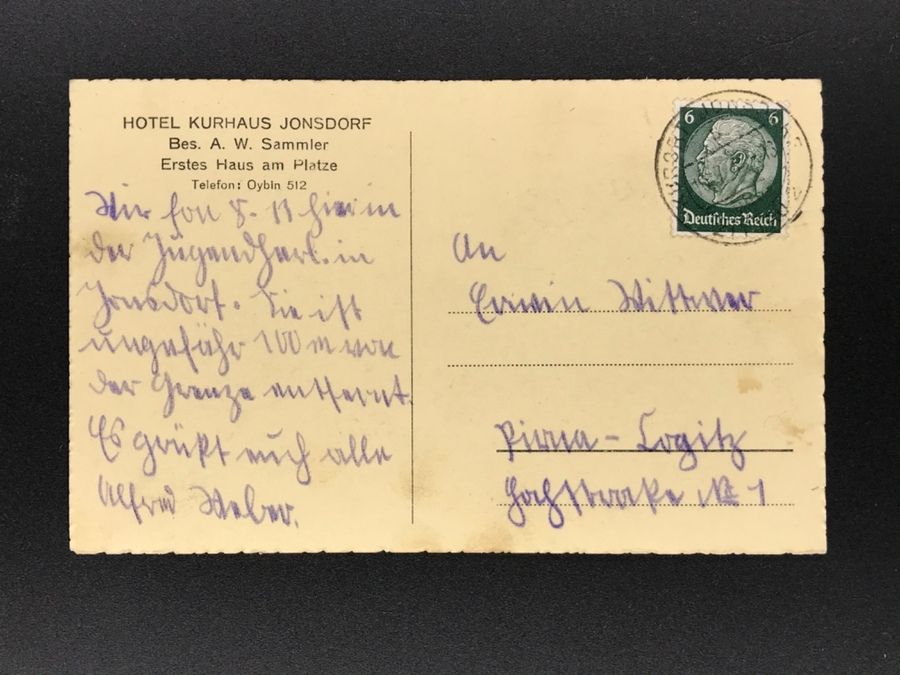 HOTEL KURHAUS JONSDORF
Bes. A. W. Sammler
Erstes Haus am Platze
Telefon: Oybin 512
Wir
der Jugendherb. in
Jonsdorf. Sie ist
ungefähr 100 m von
der Grenze entfernt.
Es grüßt euch alle
Alfred Weber.
6 6
Deutsches Reich
An
Erwin Wittwer
Pirna - Copitz
Hochstraße № 1